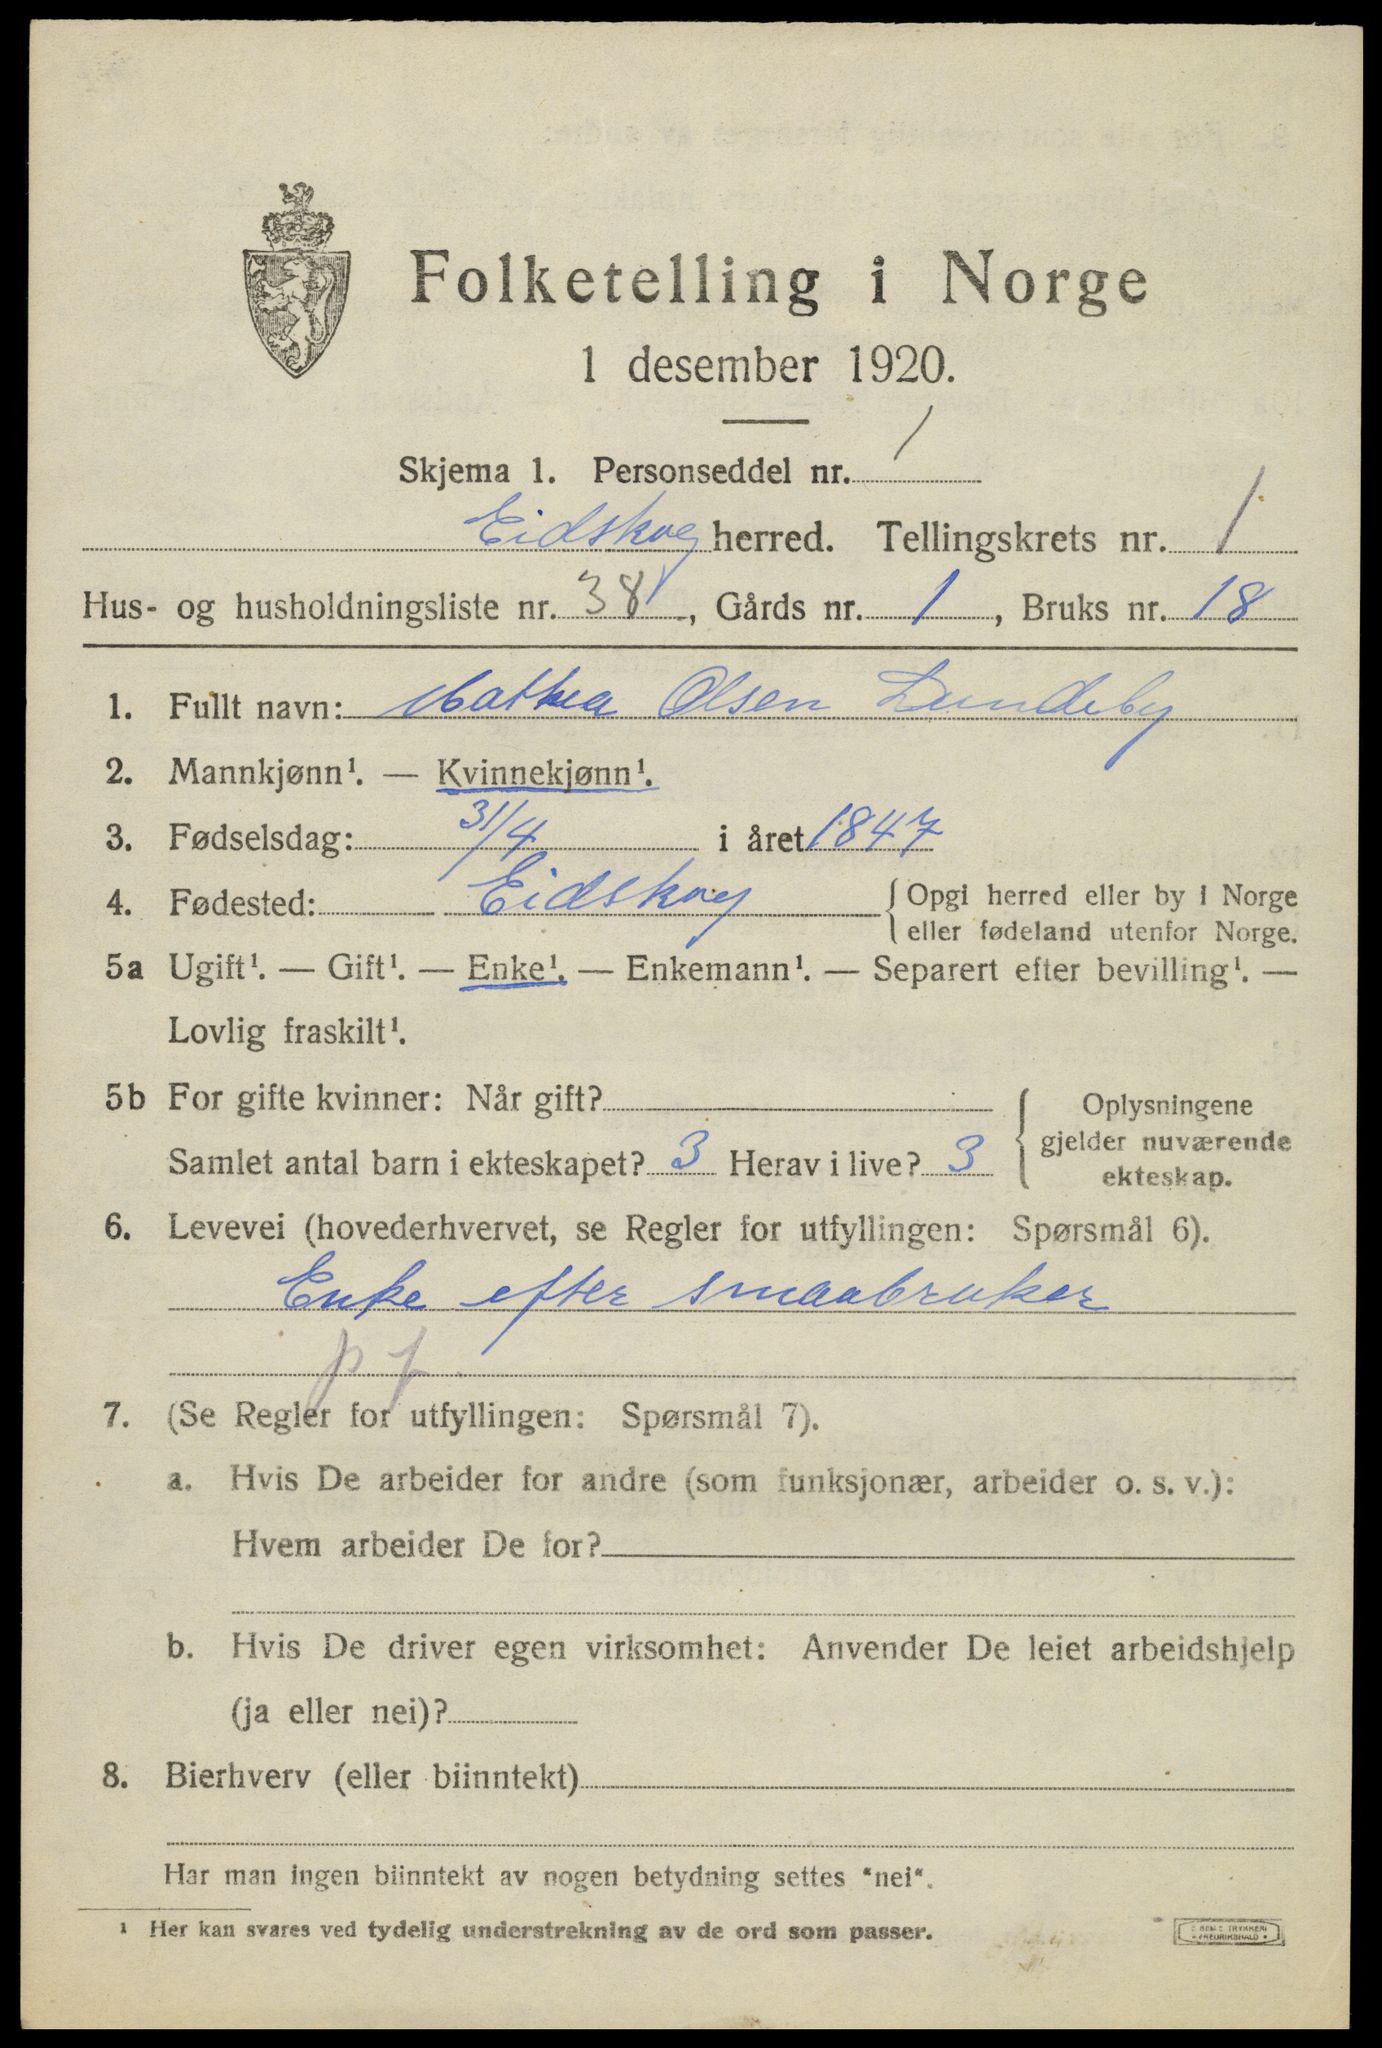 Folketelling i Norge
1 desember 1920.
Skjema 1. Personseddel nr. 1
Eidskog herred. Tellingskrets nr. 1
Hus- og husholdningsliste nr. 38, Gårds nr. 1, Bruks nr. 18
1. Fullt navn: Mathea Olsen Lundeby
2. Mannkjønn¹. — Kvinnekjønn¹.
3. Fødselsdag: 31/4 i året 1847
4. Fødested: Eidskog { Opgi herred eller by i Norge
eller fødeland utenfor Norge.
5a Ugift¹. — Gift¹. — Enke¹. — Enkemann¹. — Separert efter bevilling¹. —
Lovlig fraskilt¹.
5b For gifte kvinner: Når gift?
Samlet antal barn i ekteskapet? 3 Herav i live? 3
{ Oplysningene
gjelder nuværende
ekteskap.
6. Levevei (hovederhvervet, se Regler for utfyllingen: Spørsmål 6).
Enke efter smaabruker
p f
7. (Se Regler for utfyllingen: Spørsmål 7).
a. Hvis De arbeider for andre (som funksjonær, arbeider o. s. v.):
Hvem arbeider De for?
b. Hvis De driver egen virksomhet: Anvender De leiet arbeidshjelp
(ja eller nei)?
8. Bierhverv (eller biinntekt)
Har man ingen biinntekt av nogen betydning settes "nei".
¹ Her kan svares ved tydelig understrekning av de ord som passer.
TRYKKERI
FREDRIKSHALD